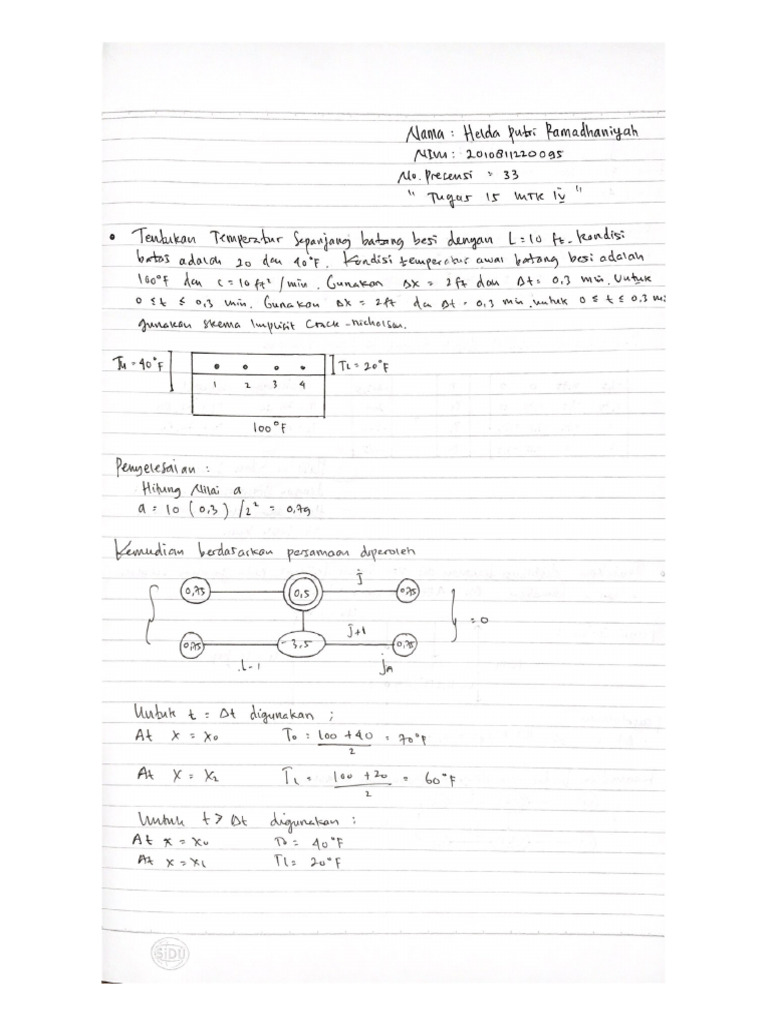 Nama : Helda Putri Ramadhaniyah
NIM : 2010811220095
No. Precensi = 33
" Tugas 15 MTK IV "
• Tentukan Temperatur Sepanjang batang besi dengan L = 10 ft. Kondisi
batas adalah 20 dan 40°F. Kondisi temperatur awal batang besi adalah
100°F dan c = 10 ft²/min. Gunakan Δx = 2ft dan Δt = 0,3 min. Untuk
0 ≤ t ≤ 0,3 min. Gunakan Δx = 2ft dan Δt = 0,3 min untuk 0 ≤ t ≤ 0,3 mi
gunakan skema Implisit Crack-nicholson.
= 40°F
TL = 20°F
1 2 3 4
100°F
Penyelesaian :
Hitung Nilai a
a = 10 (0,3) / 2² = 0,79
Kemudian berdasarkan persamaan diperoleh
0,75 0,5 j 0,75
= 0
0,75 -3,5 j+1 0,75
i-1
Untuk t = Δt digunakan ;
At x = x0 T0 = 100 + 40 / 2 = 70°F
At x = x2 TL = 100 + 20 / 2 = 60°F
Untuk t > Δt digunakan :
At x = x0 = 40°F
At x = xL TL = 20°F
SIDU